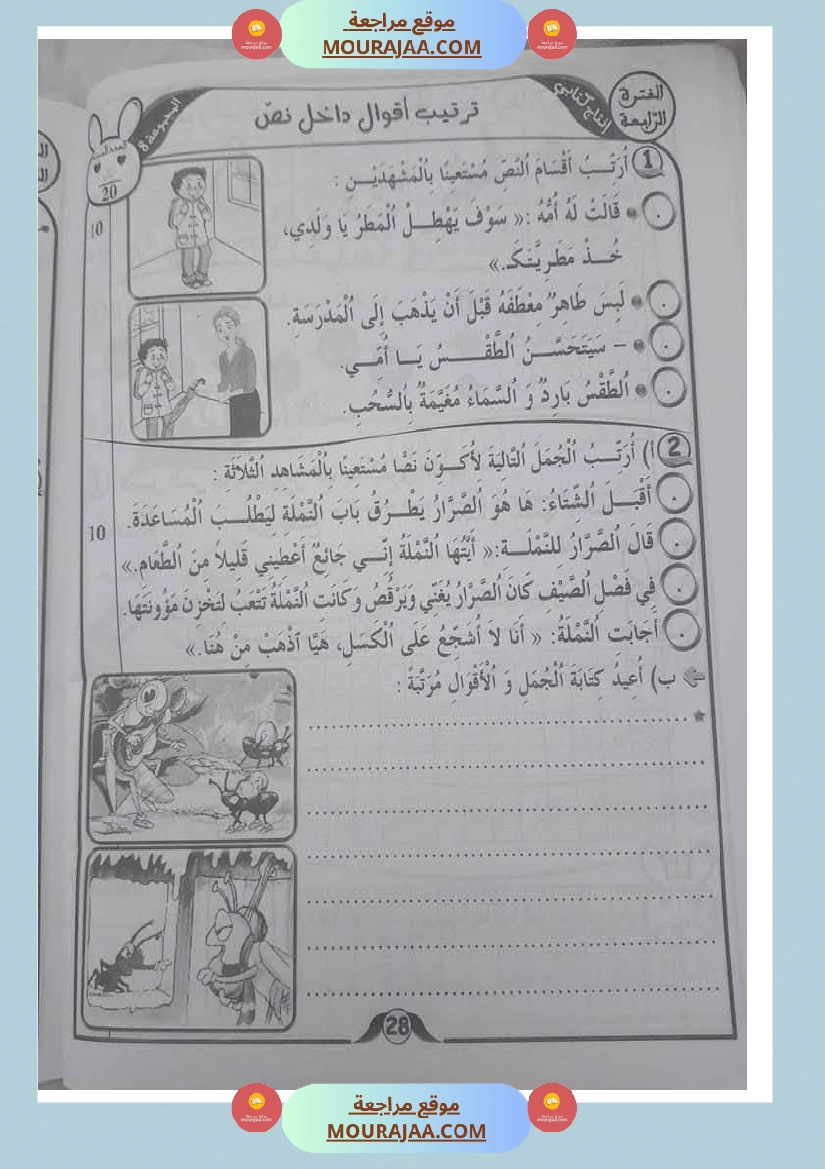 موقع مراجعة
MOURAJAA.COM
الفترة الرّابعة
إنتاج كتابي
ترتيب أقوال داخل نصّ
المجموعة 8
20
1 أُرَتِّبُ أَقْسَامَ النَّصِّ مُسْتَعِينًا بِالْمَشْهَدَيْنِ :
10
• قَالَتْ لَهُ أُمُّهُ :« سَوْفَ يَهْطِلُ الْمَطَرُ يَا وَلَدِي،
خُذْ مَطَرِيَّتَكَ.»
• لَبِسَ طَاهِرٌ مِعْطَفَهُ قَبْلَ أَنْ يَذْهَبَ إِلَى الْمَدْرَسَةِ.
• – سَيَتَحَسَّنُ الطَّقْسُ يَا أُمِّي.
• الطَّقْسُ بَارِدٌ وَ السَّمَاءُ مُغَيَّمَةٌ بِالسُّحُبِ.
2 أ) أُرَتِّبُ الْجُمَلَ التَّالِيَةَ لِأُكَوِّنَ نَصًّا مُسْتَعِينًا بِالْمَشَاهِدِ الثَّلَاثَةِ :
أَقْبَلَ الشِّتَاءُ: هَا هُوَ الصَّرَّارُ يَطْرُقُ بَابَ النَّمْلَةِ لِيَطْلُبَ الْمُسَاعَدَةَ.
10
قَالَ الصَّرَّارُ للنَّمْلَةِ:« أَيَّتُهَا النَّمْلَةُ إِنِّي جَائِعٌ أَعْطِينِي قَلِيلاً مِنَ الطَّعَامِ.»
فِي فَصْلِ الصَّيْفِ كَانَ الصَّرَّارُ يُغَنِّي وَيَرْقُصُ وَكَانَتِ النَّمْلَةُ تَتْعَبُ لِتَخْزِنَ مَؤُونَتَهَا.
أَجَابَتِ النَّمْلَةُ: « أَنَا لاَ أُشَجِّعُ عَلَى الْكَسَلِ، هَيَّا اذْهَبْ مِنْ هُنَا.»
ب) أُعِيدُ كِتَابَةَ الْجُمَلِ وَ الْأَقْوَالِ مُرَتَّبَةً :
28
موقع مراجعة
MOURAJAA.COM